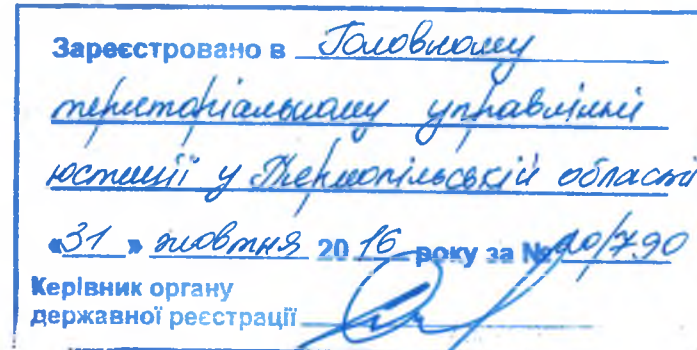 Зареєстровано в Головному
територіальному управлінні
юстиції у Тернопільській області
«31» жовтня 2016 року за № 20/790
Керівник органу
державної реєстрації